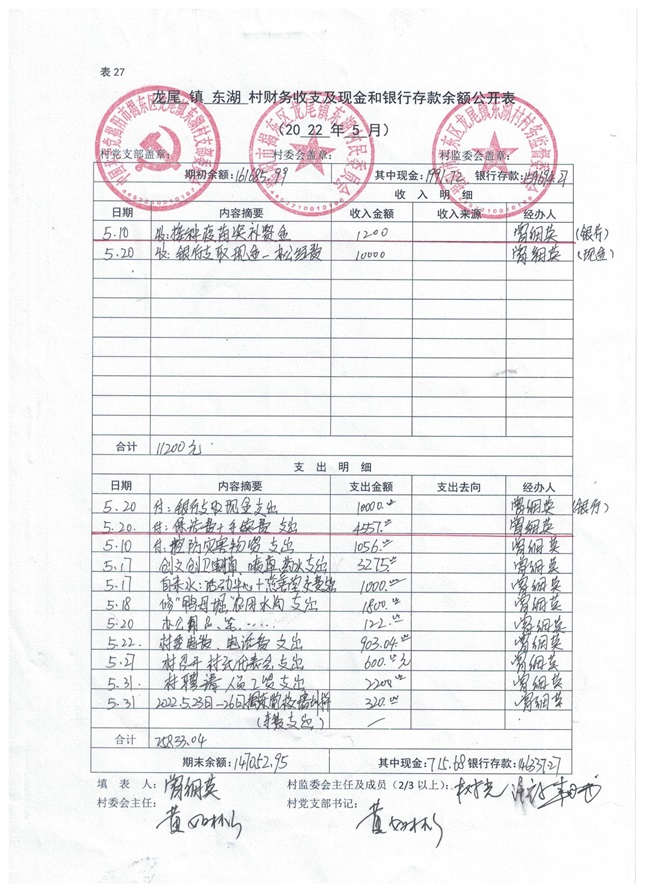 表 27
龙尾 镇 东湖 村财务收支及现金和银行存款余额公开表
（20 22 年 5 月）
村党支部盖章： 村委会盖章： 村监委会盖章：
期初余额：161685.99 其中现金：1991.72 银行存款：159694.27
收 入 明 细
日期 内容摘要 收入金额 收入来源 经办人
5.10 收：接种疫苗奖补资金 1200 (银行)
5.20 收：银行支取现金 10000 (现金)
合计 11200元
支 出 明 细
日期 内容摘要 支出金额 支出去向 经办人
5.20 付：银行支取现金支出 10000.00 (银行)
5.20. 付：保洁费+手续费支出 4557.00
5.10 付：物资支出 1056.00
5.17 创文创卫 支出 3275.00
5.17 自来水：活动中心 1000.00
5.18 修 水沟支出 1800.00
5.20 办公用品、笔、…… 122.00
5.22. 村委电费、电话费支出 903.04
5.27 村召开村民代表会支出 600.00元
5.31. 村聘请人员工资支出 2200.00
5.31 2022.5.23日—26日 320.00
支出）
合计 25833.04
期末余额：147052.95 其中现金：715.68 银行存款：146337.27
填 表 人： 村监委会主任及成员（2/3 以上）：
村委会主任： 村党支部书记：